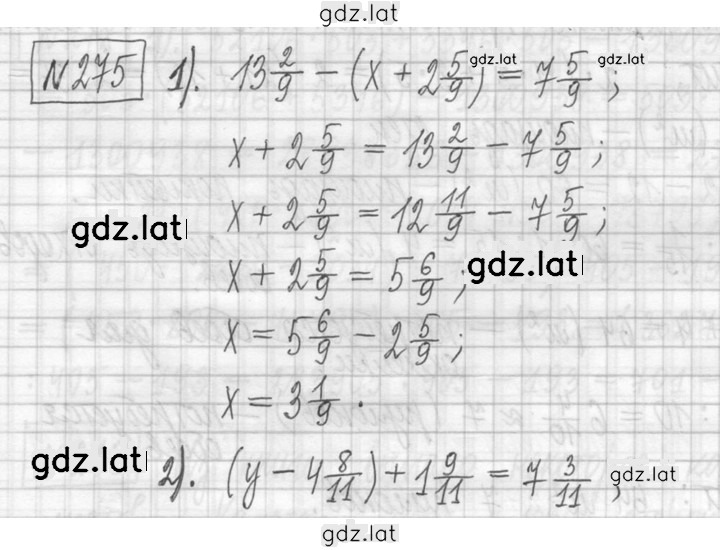 gdz.lat
№275 1). 13 2/9 - (x + 2 5/9) = 7 5/9 ;
gdz.lat gdz.lat
x + 2 5/9 = 13 2/9 - 7 5/9 ;
x + 2 5/9 = 12 11/9 - 7 5/9 ;
gdz.lat
x + 2 5/9 = 5 6/9 ;
gdz.lat
x = 5 6/9 - 2 5/9 ;
x = 3 1/9 .
gdz.lat
2). (y - 4 8/11) + 1 9/11 = 7 3/11 ;
gdz.lat
gdz.lat